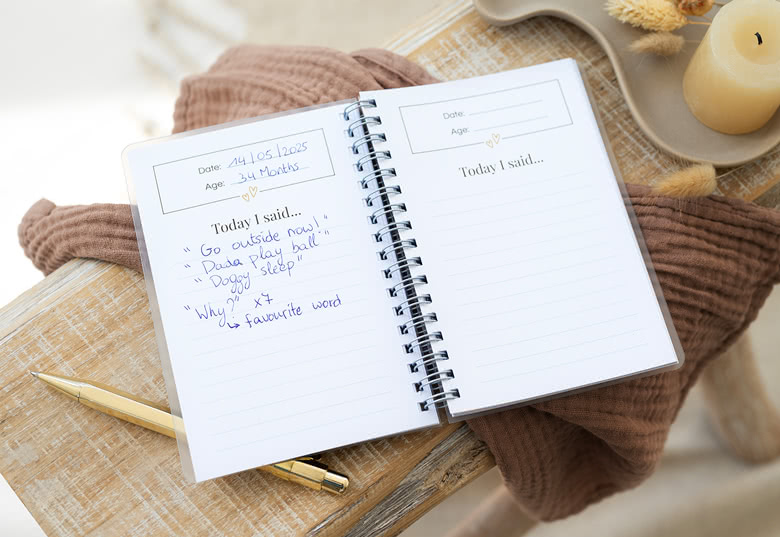 Date: 14/05/2025
Age: 34 Months
Today I said...
" Go outside now!"
" Dada play ball"
" Doggy sleep"
"Why?" x7
↳ favourite word
Date:
Age:
Today I said...